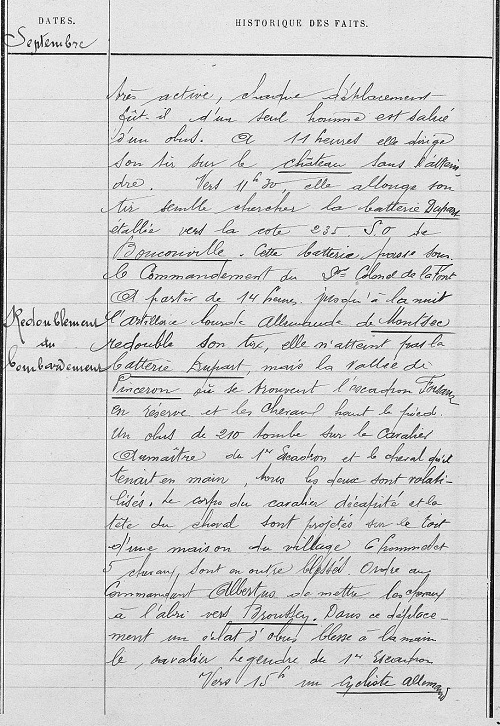 DATES.
HISTORIQUE DES FAITS.
Septembre
très active, chaque déplacement
fût-il d'un seul homme est salué
d'un obus. A 11 heures elle dirige
son tir sur le château sans l'attein
dre. Vers 11h30, elle allonge son
tir semble chercher la batterie Dupart
établie vers la cote 235 SO de
Bouconville. Cette batterie passe sous
le Commandement du Colonel de la Font
A partir de 14 heures jusqu'à la nuit
Redoublement
du
bombardement
l'artillerie lourde Allemande de Montsec
redouble son tir, elle n'atteint pas la
batterie Dupart, mais la vallée de
Pinceron où se trouvent l'escadron
en réserve et les chevaux haut le pied.
Un obus de 210 tombe sur le Cavalier
Aumaître du 1er Escadron et le cheval qu'il
tenait en main, tous les deux sont volati-
lisés. Le corps du cavalier décapité et la
tête du cheval sont projetés sur le toit
d'une maison du village 6 hommes et
5 chevaux, sont en outre blessés. Ordre au
Commandant Albert de mettre les chevaux
à l'abri vers Broussey. Dans ce déplace-
ment un éclat d'obus blesse à la main
le cavalier Legendre du 1er Escadron
Vers 15h un Cycliste allemand